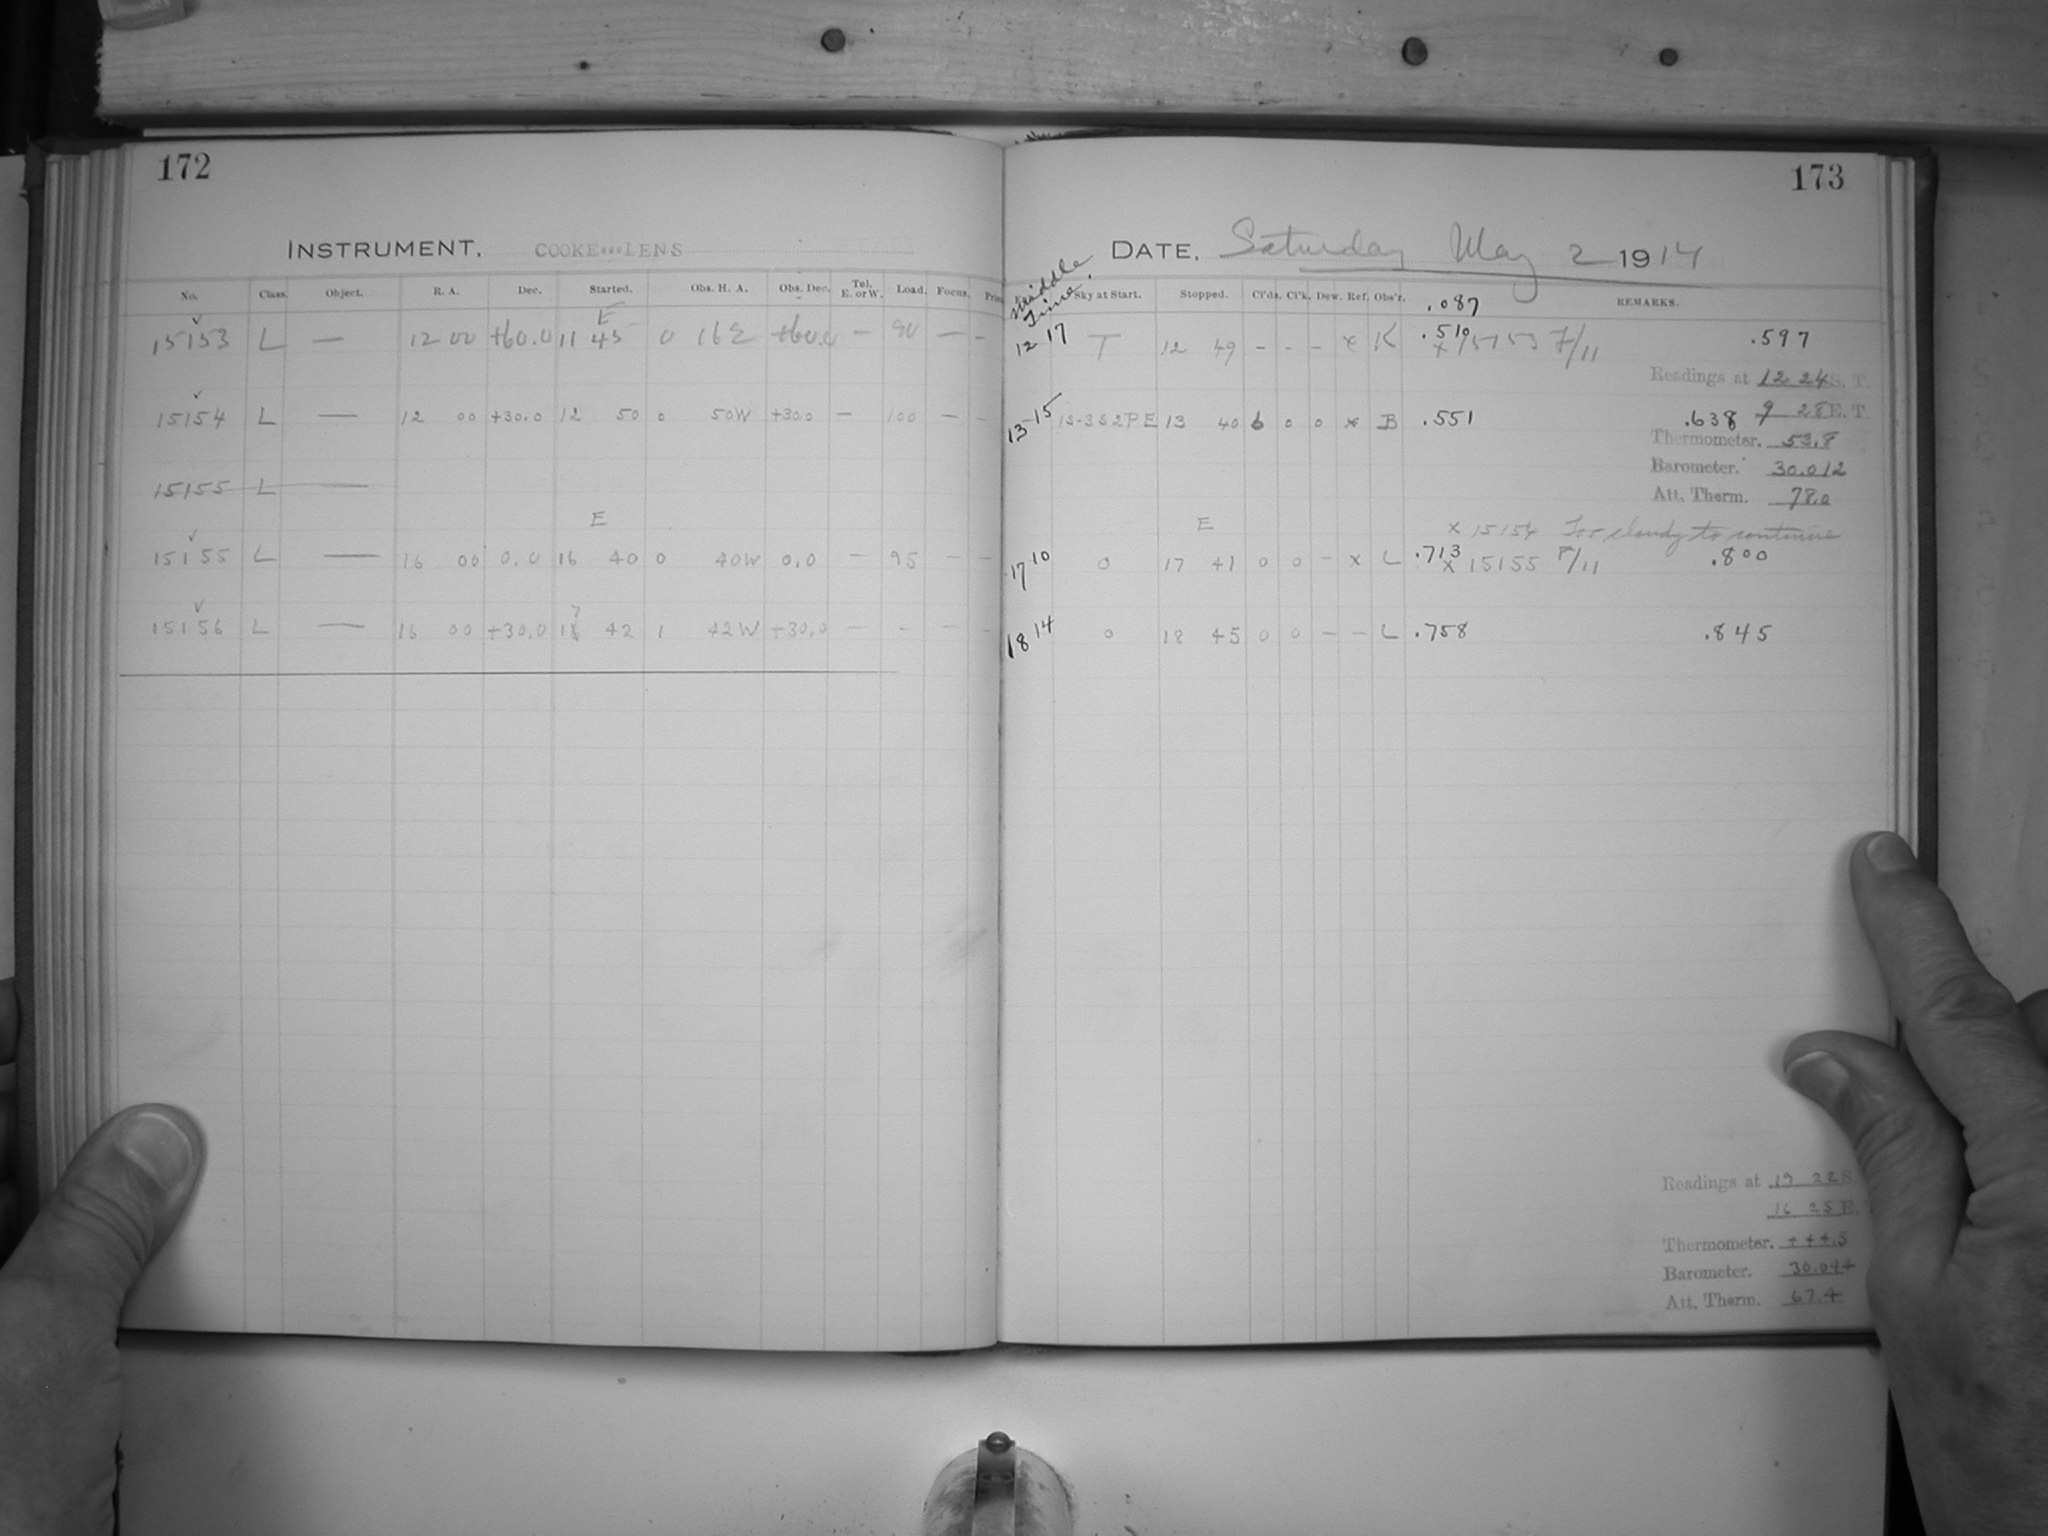 172
INSTRUMENT. COOKE LENS
No. Class. Object. R. A. Dec. Started. Obs. H. A. Obs. Dec. Tel. E. or W. Load. Focus.
E
15153 L — 12 00 +60.0 11 45 0 16 E +60.0 — 90 — -
15154 L — 12 00 +30.0 12 50 0 50W +30.0 — 100 — -
15155 L —
E
15155 L — 16 00 0.0 16 40 0 40W 0.0 — 95 — -
15156 L — 16 00 +30.0 17 42 1 42W +30.0 — - - -
173
DATE. Saturday May 2 1914
Middle Time. Sky at Start. Stopped. Cl'ds. Cl'k. Dew. Ref. Obs'r. REMARKS.
.087
12 17 T 12 49 - - - x K .510 .597
x 15153 F/11
Readings at 12 24 S. T.
9 28 E. T.
13 15 13 40 6 0 0 x B .551 .638
Thermometer. 53.8
Barometer. 30.012
Att. Therm. 78.0
E
x 15154 Too cloudy to continue
17 10 0 17 41 0 0 - x L .713 .800
x 15155 F/11
18 14 0 18 45 0 0 - - L .758 .845
Readings at 19 22 S.
16 25 E. T
Thermometer. +44.5
Barometer. 30.044
Att. Therm. 67.4